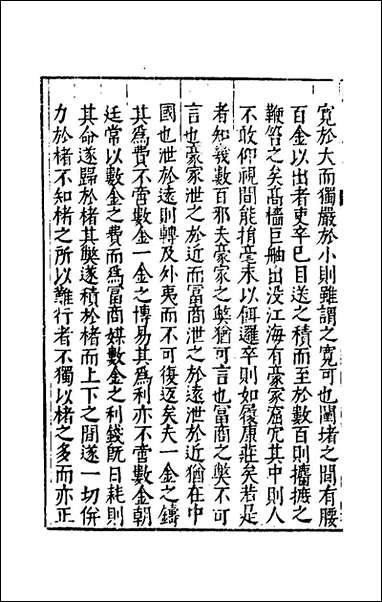 寛於大而獨嚴於小則雖謂之寛可也闤堵之間有腰
百金以出者吏卒已目送之積而至於數百則攟摭之
鞭笞之矣髙檣巨舳出没江海有豪家窟穴其中則人
不敢仰視間能捐毫末以餌邏卒則如履康莊矣若是
者知㡬數百耶夫豪家之獘猶可言也冨商之獘不可
言也豪家泄之於近而冨商泄之於逺泄於近猶在中
國也泄於逺則轉及外夷而不可復返矣夫一金之鑄
其為費不啻數金一金之博易其為利亦不啻數金朝
廷常以數金之費而為冨商媒數金之利錢旣日耗則
其命遂歸於楮其獘遂積於楮而上下之間遂一切併
力於楮不知楮之所以難行者不獨以楮之多而亦正